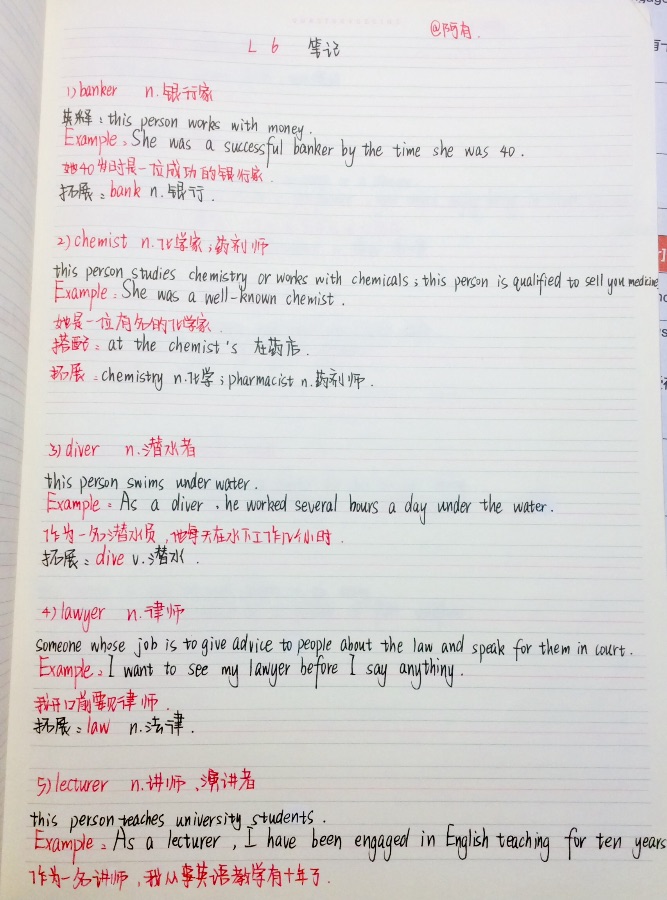 @阿有.
L 6 笔记
1) banker n. 银行家
英释: this person works with money.
Example: She was a successful banker by the time she was 40.
她40岁时是一位成功的银行家.
拓展: bank n. 银行.
2) chemist n. 化学家;药剂师
this person studies chemistry or works with chemicals; this person is qualified to sell you medicine
Example: She was a well-known chemist.
她是一位有名的化学家.
搭配: at the chemist's 在药店.
拓展: chemistry n. 化学; pharmacist n. 药剂师.
3) diver n. 潜水者
this person swims under water.
Example: As a diver, he worked several hours a day under the water.
作为一名潜水员,他每天在水下工作几个小时.
拓展: dive v. 潜水.
4) lawyer n. 律师
someone whose job is to give advice to people about the law and speak for them in court.
Example: I want to see my lawyer before I say anything.
我开口前要见律师.
拓展: law n. 法律.
5) lecturer n. 讲师、演讲者
this person teaches university students.
Example: As a lecturer, I have been engaged in English teaching for ten years
作为一名讲师,我从事英语教学有十年了.